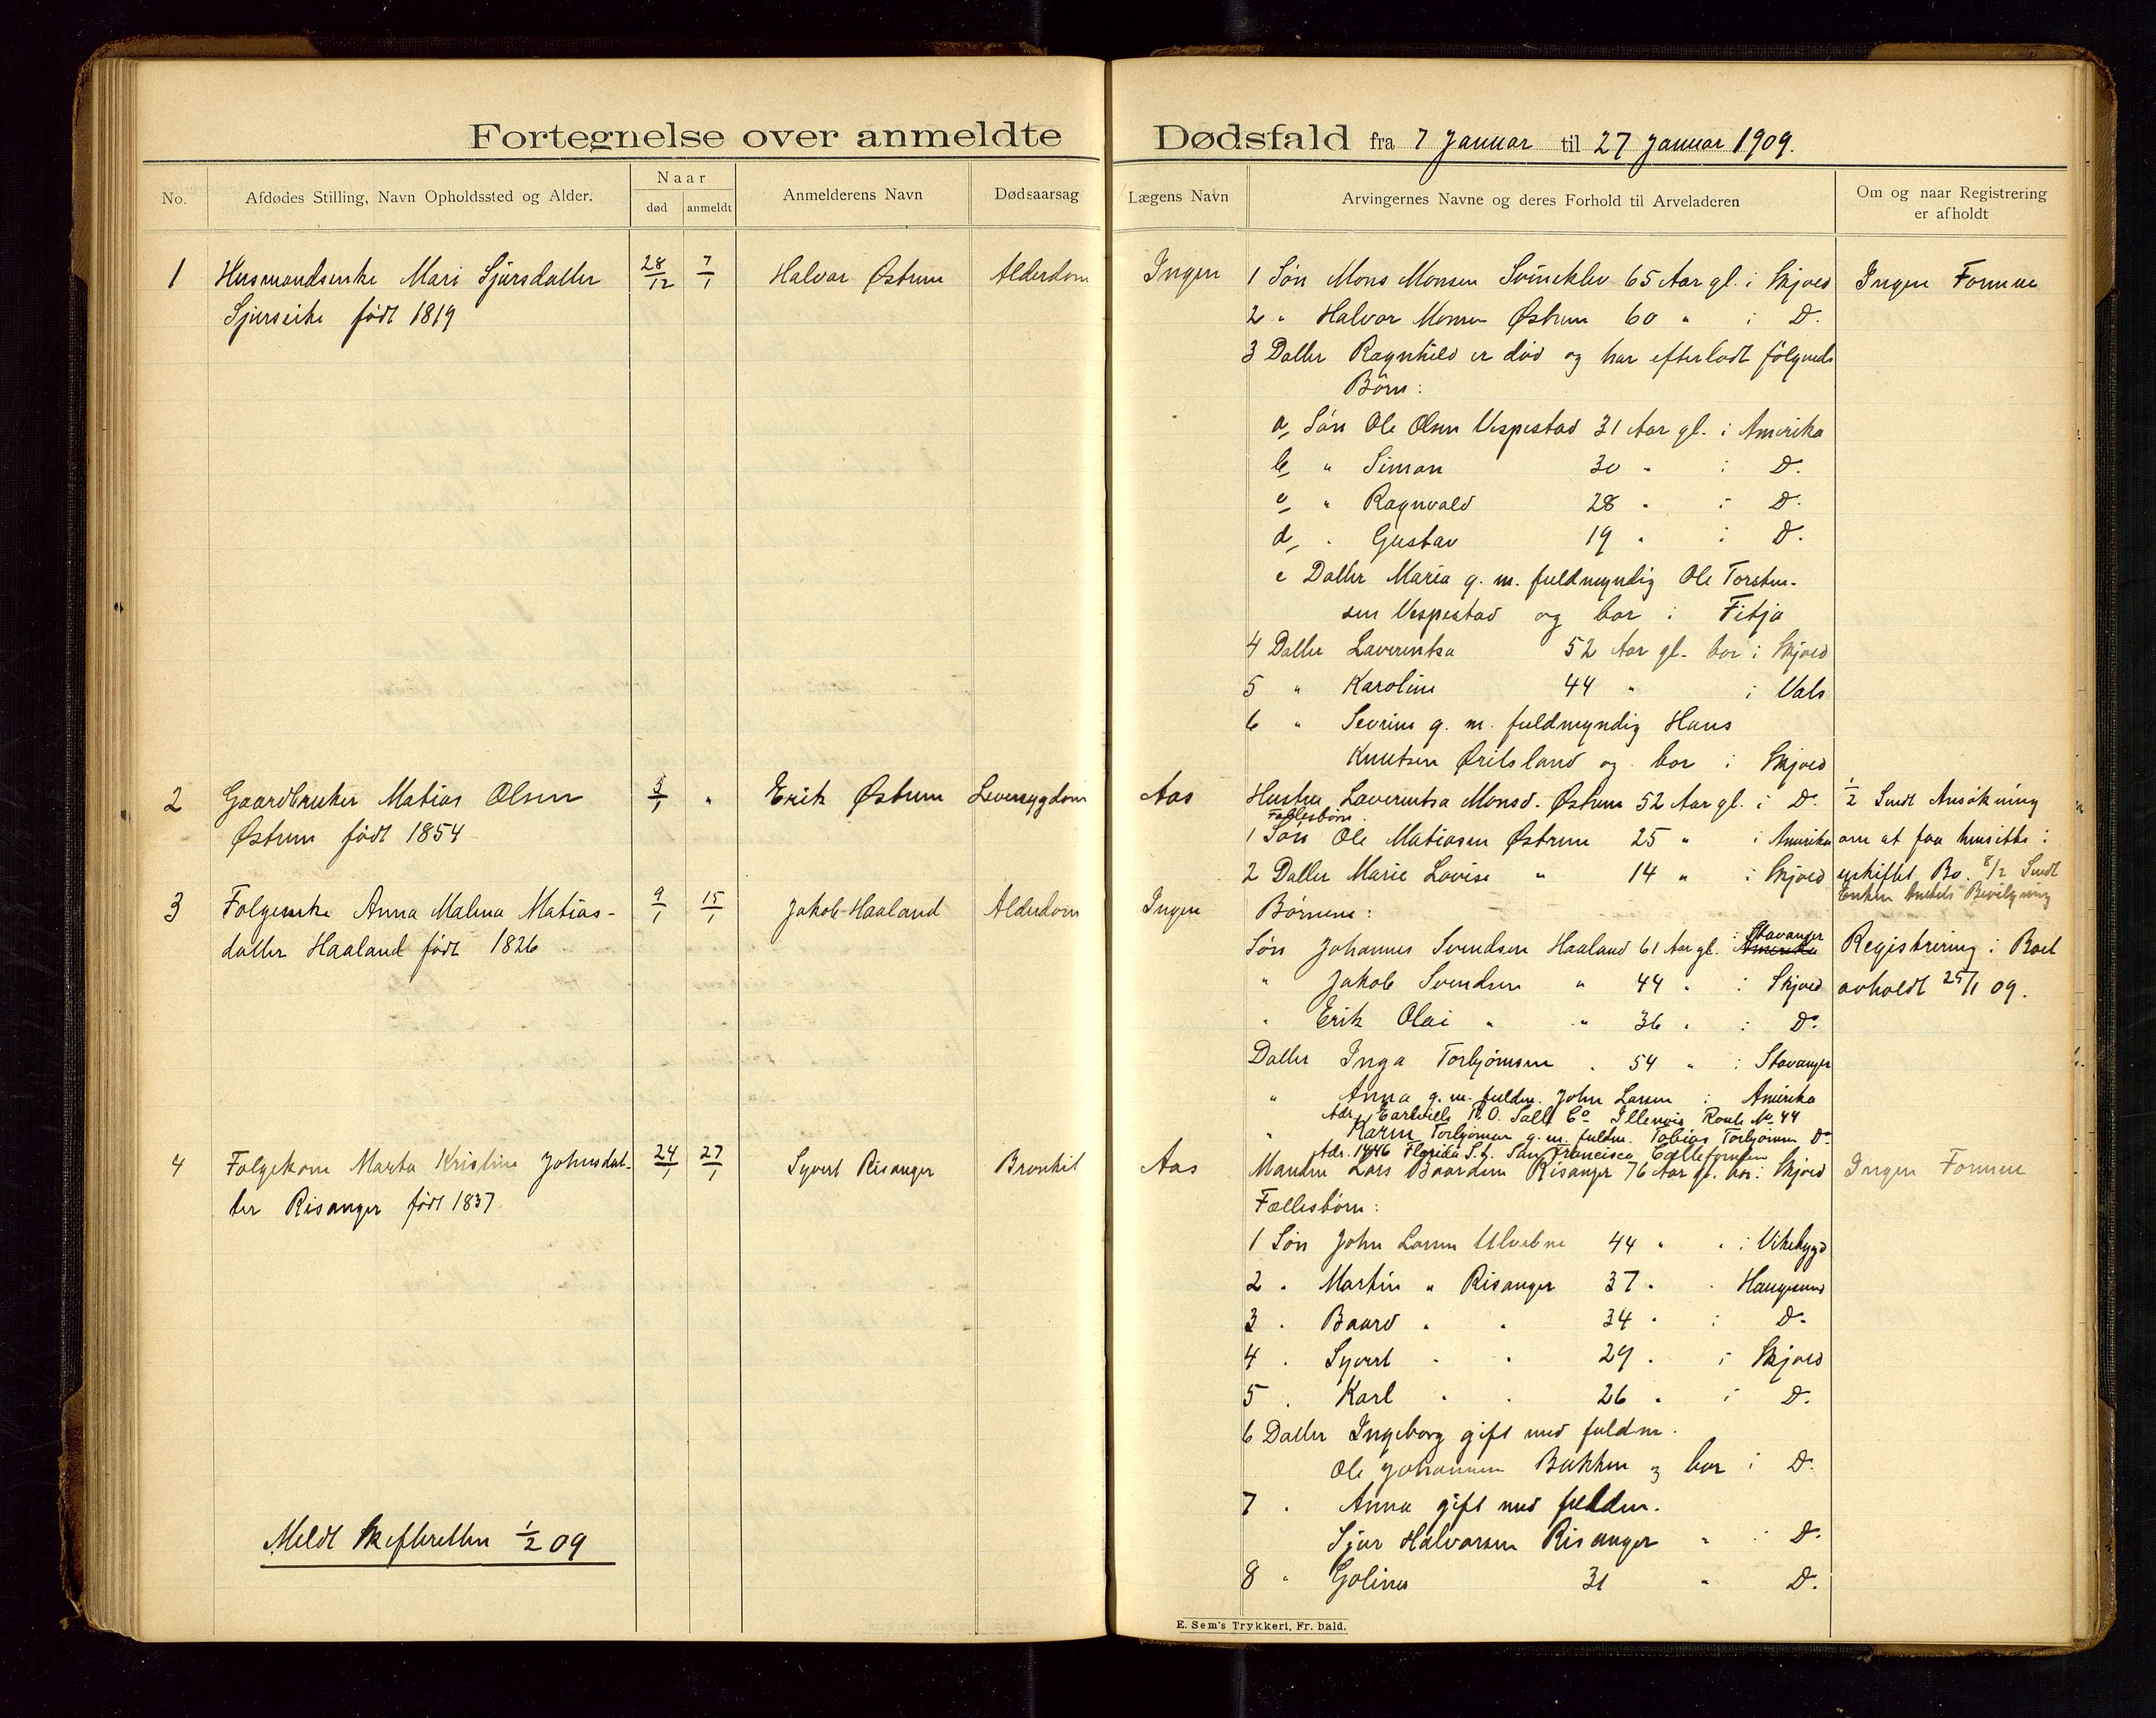 Fortegnelse over anmeldte Dødsfald fra 7 Januar til 27 Januar 1909.
No.
Afdødes Stilling, Navn Opholdssted og Alder.
Naar
død
anmeldt
Anmelderens Navn
Dødsaarsag
Lægens Navn
Arvingernes Navne og deres Forhold til Arveladeren
Om og naar Registrering
er afholdt
1 Husmandsenke Mari Sjursdatter 28/12 7/1 Halvar Østrem Alderdom Ingen
Sjurseike født 1819
1 Søn Mons Monsen Svineklev 65 Aar gl. i Skjold Ingen Formue
2 " Halvor Monsen Østrem 60 " i Do.
3 Datter Ragnhild er død og har efterladt følgende
Børn:
a, Søn Ole Olsen Vespestad 31 Aar gl. i Amerika
b, " Simon 30 " i Do.
c, " Ragnvald 28 " i Do.
d, " Gustav 19 " i Do.
e Datter Maria g. m. fuldmyndig Ole Torsten-
sen Vespestad og bor i Fitja
4 Datter Laverentsa 52 Aar gl. bor i Skjold
5 " Karoline 44 " i Vats
6 " Sevrine g. m. fuldmyndig Hans
Knutsen Øritsland og bor i Skjold
2 Gaardbruker Matias Olsen 3/1 " Erik Østrem Leversygdom Aas
Østrem født 1854
Hustru Laverentsa Monsd. Østrem 52 Aar gl. i Do. 1/2 Sendt Ansøkning
Fællesbørn:
1 Søn Ole Matiasen Østrem 25 " i Amerika om at faa hensitte i
2 Datter Marie Lovise " 14 " i Skjold uskiftet Bo. 8/2 Sendt
Enken Bevilgning
3 Folgeenke Anna Malena Matias- 9/1 15/1 Jakob Haaland Alderdom Ingen
datter Haaland født 1826
Børnene:
Søn Johannes Svendsen Haaland 61 Aar gl. i Stavanger Amerika Registrering i Boet
" Jakob Svendsen " 44 " i Skjold avholdt 25/1 09.
" Erik Olai " " 36 " i Do.
Datter Inga Torbjørnsen " 54 " i Stavanger
" Anna g. m. fuldm. John Larsen i Amerika
Adr. Earlville P.O. Salle Co Illenois Route No 44
" Karen Torbjørnsen g. m. fuldm. Tobias Torbjørnsen Do
Adr. 1446 Florida St. San Francisco Californien
4 Folgekone Marta Kristine Johnsdat- 24/1 27/1 Syvert Risanger Bronkit Aas
ter Risanger født 1837
Manden Lars Baardsen Risanger 76 Aar gl. bor i Skjold Ingen Formue
Fællesbørn:
1 Søn John Larsen 44 " " i Vikebygd
2 " Martin " Risanger 37 " " Haugesund
3 " Baard " " 34 " i Do.
4 " Syvert " " 29 " i Skjold
5 " Karl " " 26 " i Do.
6 Datter Ingeborg gift med fuldm.
Ole Johannesen Bakken og bor i Do.
7 " Anna gift med fuldm.
Sjur Halvorsen Risanger " i Do.
8 " Goline 31 " Do.
Meldt Skifteretten 1/2 09
E. Sem's Trykkeri, Fr. hald.